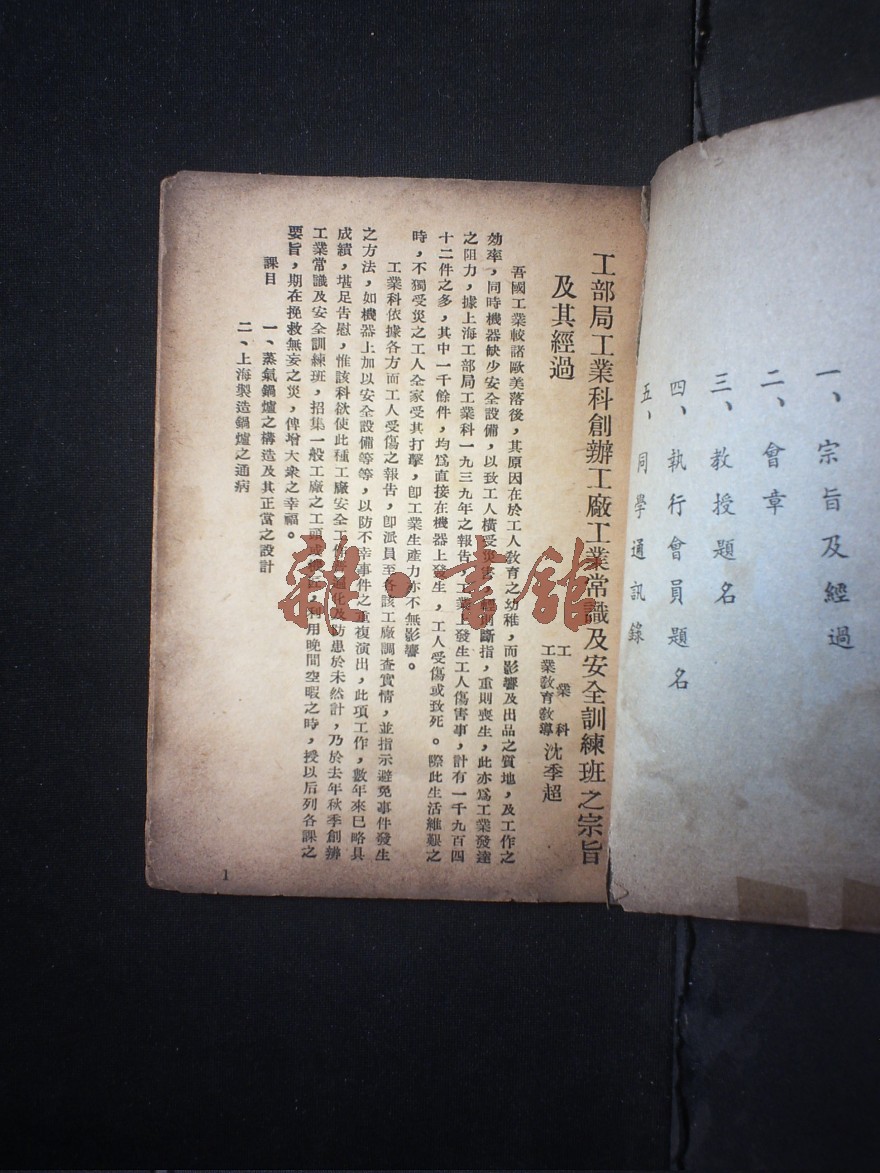 一、宗旨及經過
二、會章
三、教授題名
四、執行會員題名
五、同學通訊錄
工部局工業科創辦工廠工業常識及安全訓練班之宗旨
及其經過
工業科
工業教育教導
沈季超
吾國工業較諸歐美落後，其原因在於工人教育之幼稚，而影響及出品之質地，及工作之
效率，同時機器缺少安全設備，以致工人橫受災害，輕則斷指，重則喪生，此亦爲工業發達
之阻力，據上海工部局工業科一九三九年之報告，工業上發生工人傷害事，計有一千九百四
十二件之多，其中一千餘件，均爲直接在機器上發生，工人受傷或致死。際此生活維艱之
時，不獨受災之工人全家受其打擊，卽工業生產力亦不無影響。
工業科依據各方面工人受傷之報告，卽派員至各該工廠調查實情，並指示避免事件發生
之方法，如機器上加以安全設備等等，以防不幸事件之重複演出，此項工作，數年來已略具
成績，堪足告慰，惟該科欲使此種工廠安全工作普遍化及防患於未然計，乃於去年秋季創辦
工業常識及安全訓練班，招集一般工廠之工頭或機匠，利用晚間空暇之時，授以后列各課之
要旨，期在挽救無妄之災，俾增大衆之幸福。
課目
一、蒸氣鍋爐之構造及其正當之設計
二、上海製造鍋爐之通病
1
雜·書館